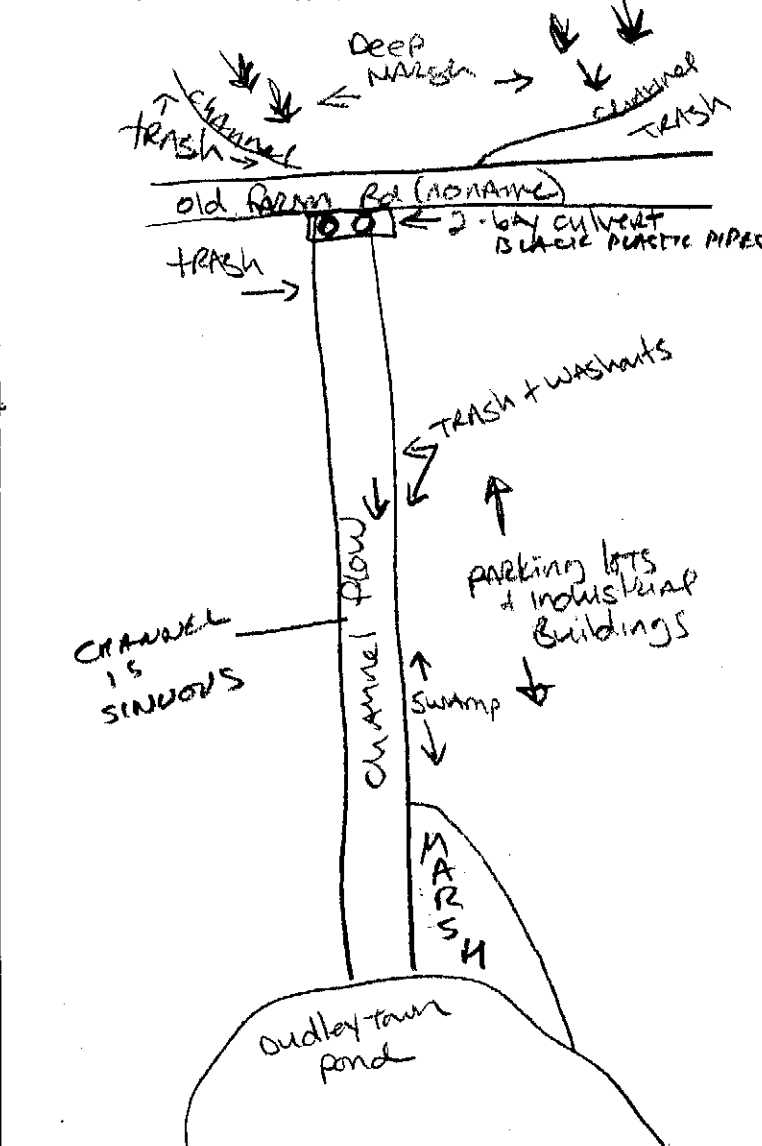 Deep
MARSh
channel
tRASh
channel
TRASH
old Farm Rd (no name)
2-bay culvert
BLACK PLASTIC PIPES
tRASh
TRASh + WAShouts
channel flow
PARking lots
+ industrial
Buildings
CHANNEL
IS
SINUOUS
Swamp
MARSH
Dudleytown
pond